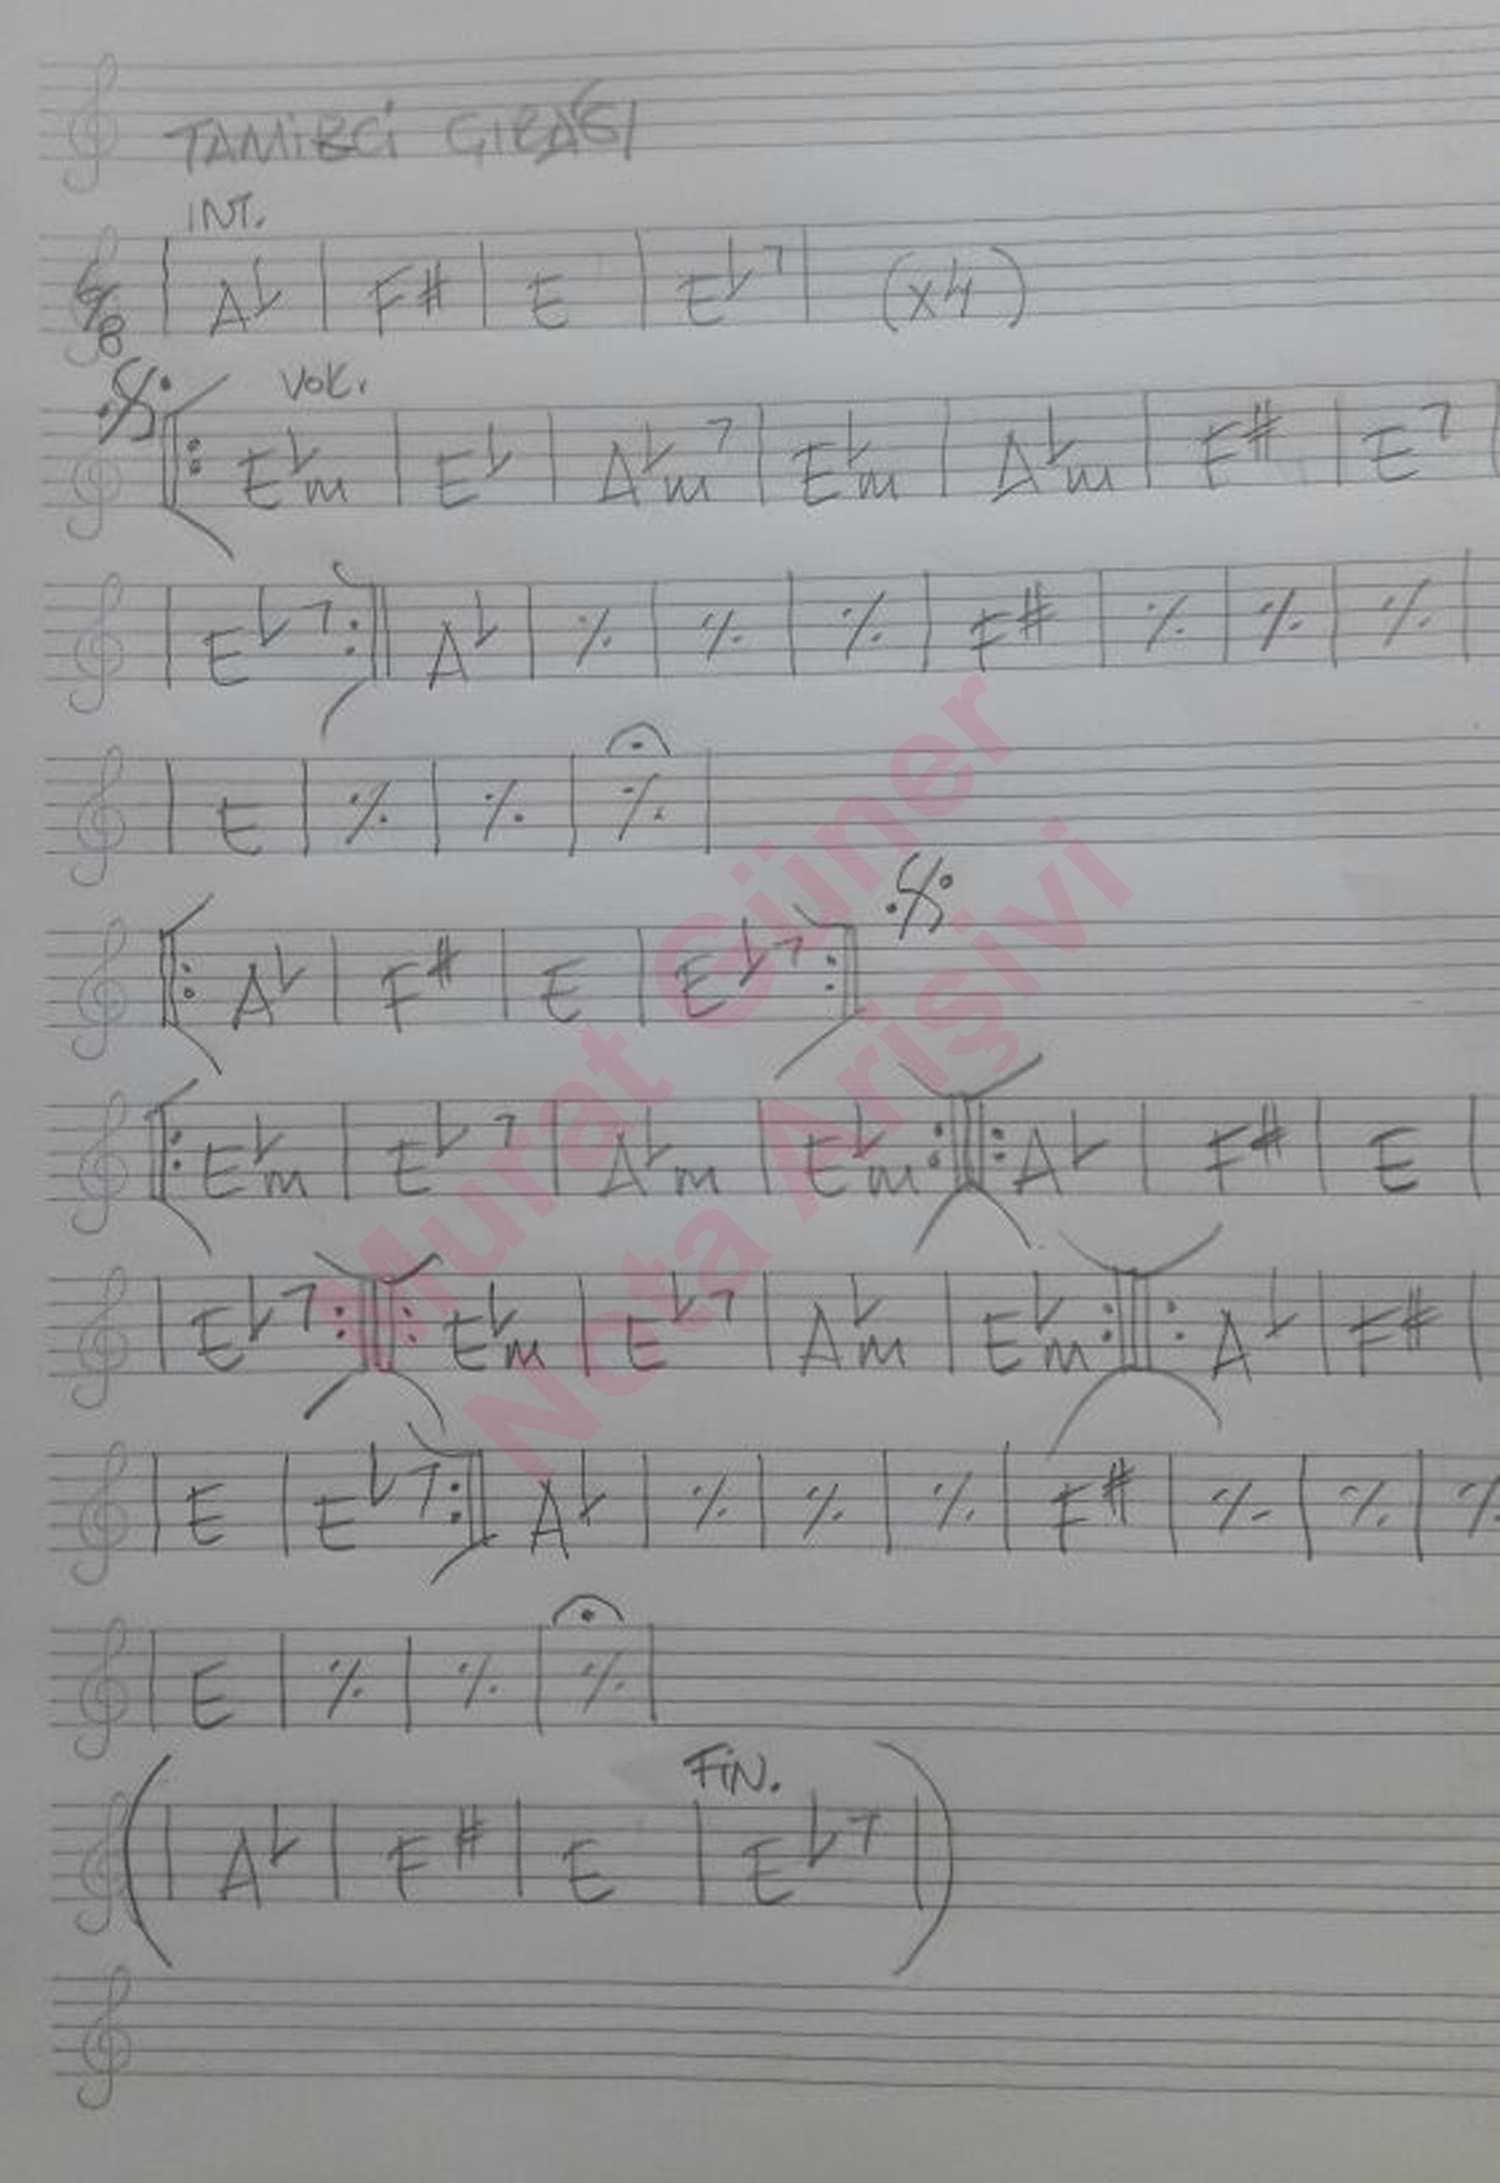 TAMİRCİ ÇIRAĞI
INT.
6/8 | A♭ | F# | E | E♭7 | (x4)
VOK.
𝄋 |: E♭m | E♭ | A♭m7 | E♭m | A♭m | F# | E7 |
| E♭7 :| A♭ | ٪ | ٪ | ٪ | F# | ٪ | ٪ | ٪ |
| E | ٪ | ٪ | ٪ |
|: A♭ | F# | E | E♭7 :| 𝄋
|: E♭m | E♭7 | A♭m | E♭m :|: A♭ | F# | E |
| E♭7 :|: E♭m | E♭7 | A♭m | E♭m :|: A♭ | F# |
| E | E♭7 :| A♭ | ٪ | ٪ | ٪ | F# | ٪ | ٪ | ٪
| E | ٪ | ٪ | ٪ |
FİN.
( | A♭ | F# | E | E♭7 | )
Murat Güner
Nota Arişivi